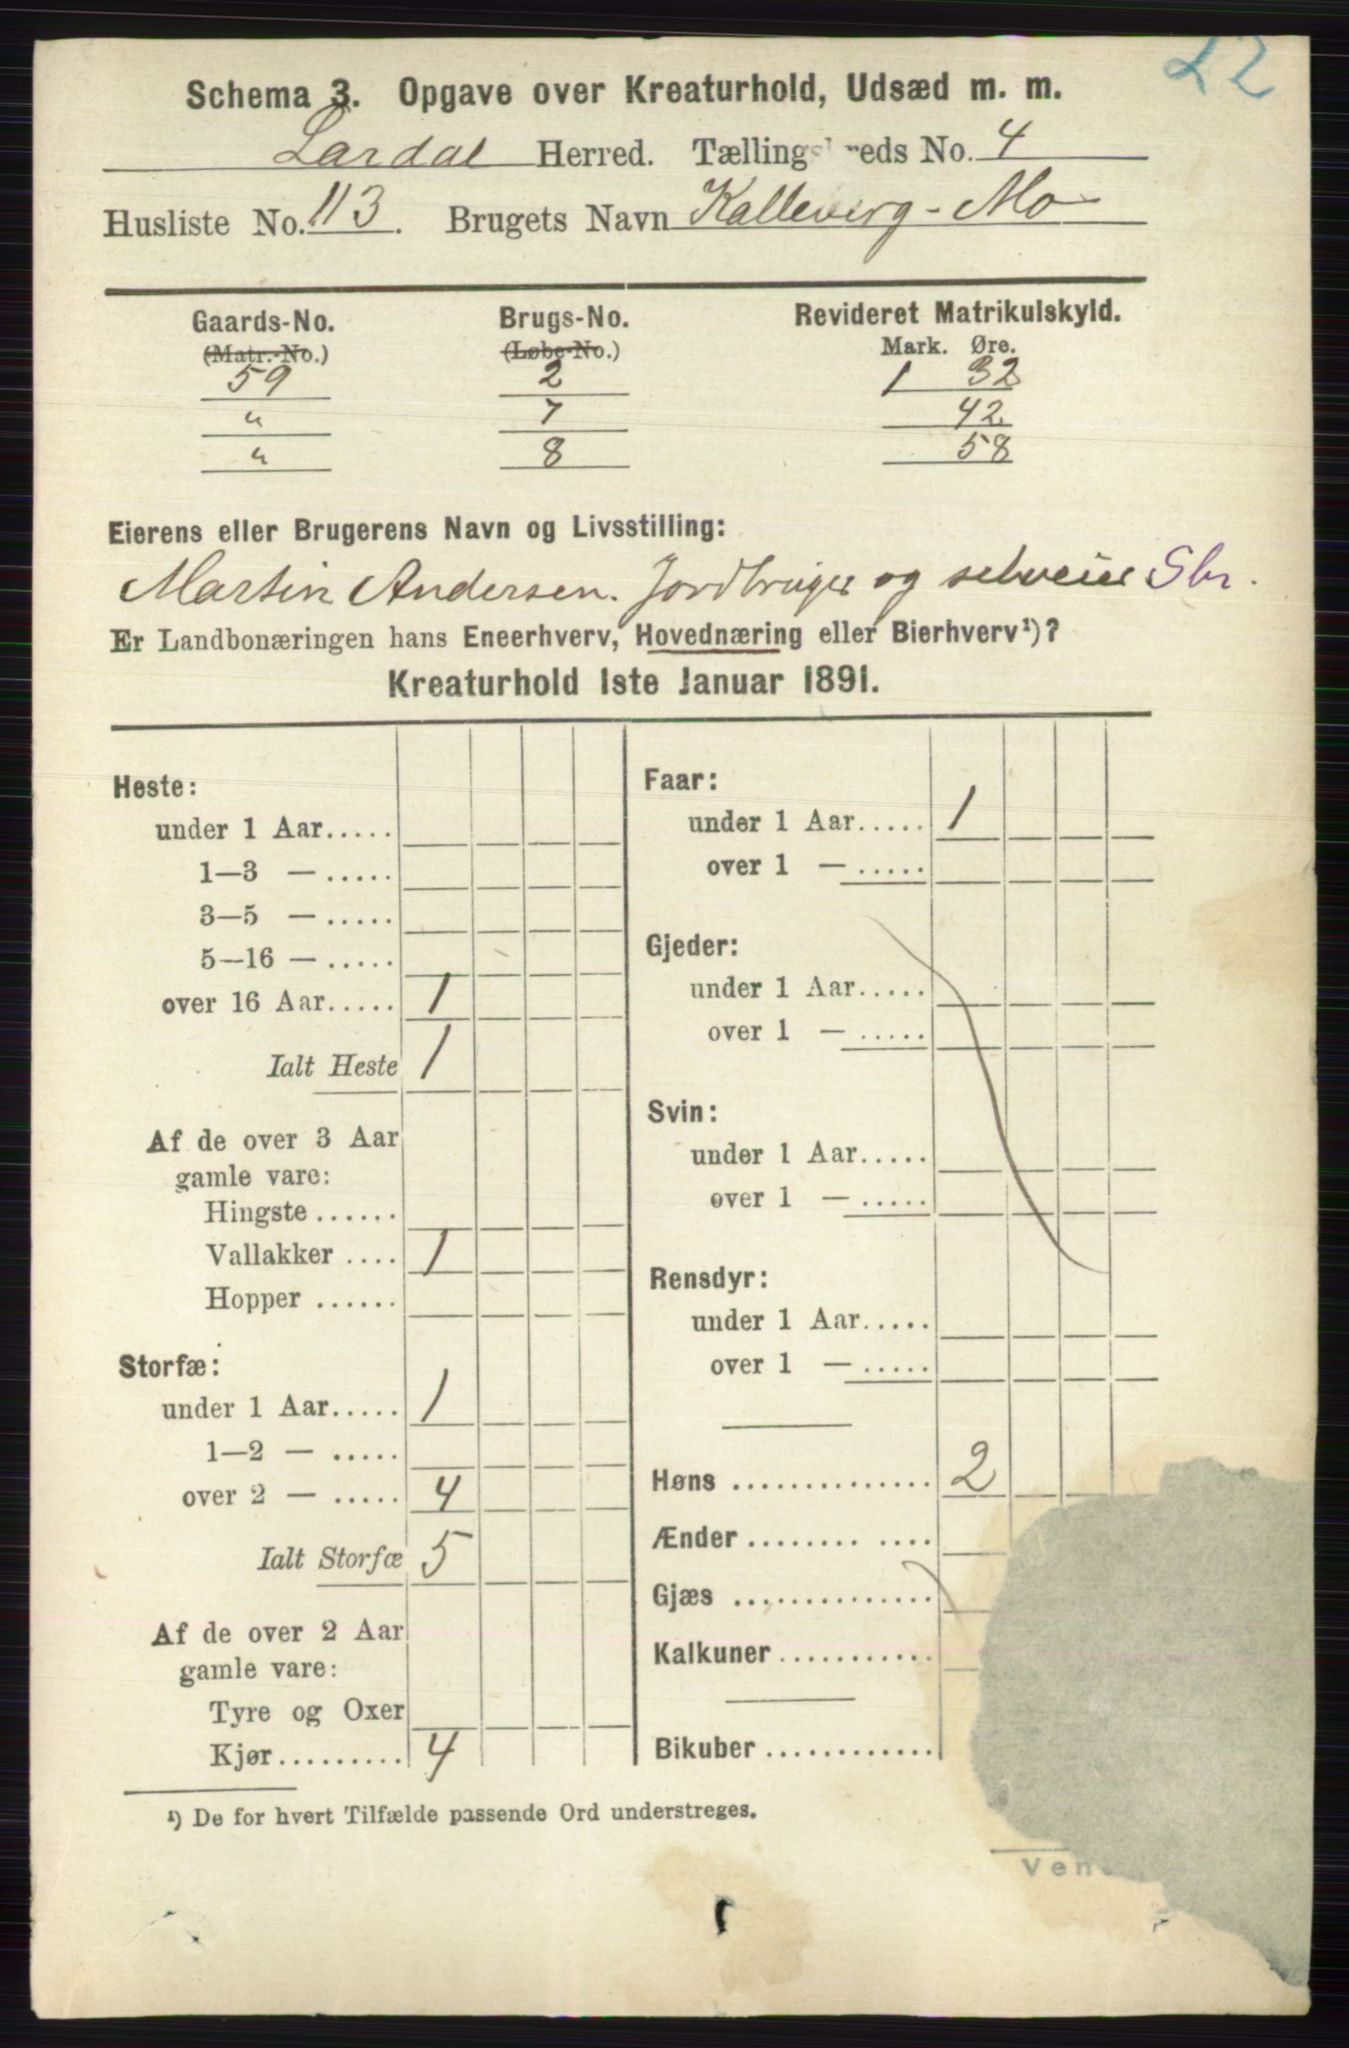 22
Schema 3. Opgave over Kreaturhold, Udsæd m. m.
Lardal Herred. Tællingskreds No. 4
Husliste No. 113. Brugets Navn Kalleberg - Mo
Gaards-No. Brugs-No. Revideret Matrikulskyld.
(Matr.-No.) (Løbe-No.) Mark. Øre.
59 2 1 32
" 7 42
" 8 58
Eierens eller Brugerens Navn og Livsstilling:
Martin Andersen. Jordbruger og selveier Sbr.
Er Landbonæringen hans Eneerhverv, Hovednæring eller Bierhverv¹)?
Kreaturhold 1ste Januar 1891.
Heste:
under 1 Aar.....
1—3 — .....
3—5 — .....
5—16 — .....
over 16 Aar..... 1
Ialt Heste 1
Af de over 3 Aar
gamle vare:
Hingste ......
Vallakker .... 1
Hopper ......
Storfæ:
under 1 Aar..... 1
1—2 — .....
over 2 — ..... 4
Ialt Storfæ 5
Af de over 2 Aar
gamle vare:
Tyre og Oxer
Kjør......... 4
Faar:
under 1 Aar..... 1
over 1 — .....
Gjeder:
under 1 Aar.....
over 1 — .....
Svin:
under 1 Aar.....
over 1 — .....
Rensdyr:
under 1 Aar.....
over 1 — .....
Høns .............. 2
Ænder ........ ....
Gjæs ..............
Kalkuner ...........
Bikuber ............
¹) De for hvert Tilfælde passende Ord understreges.
Ven